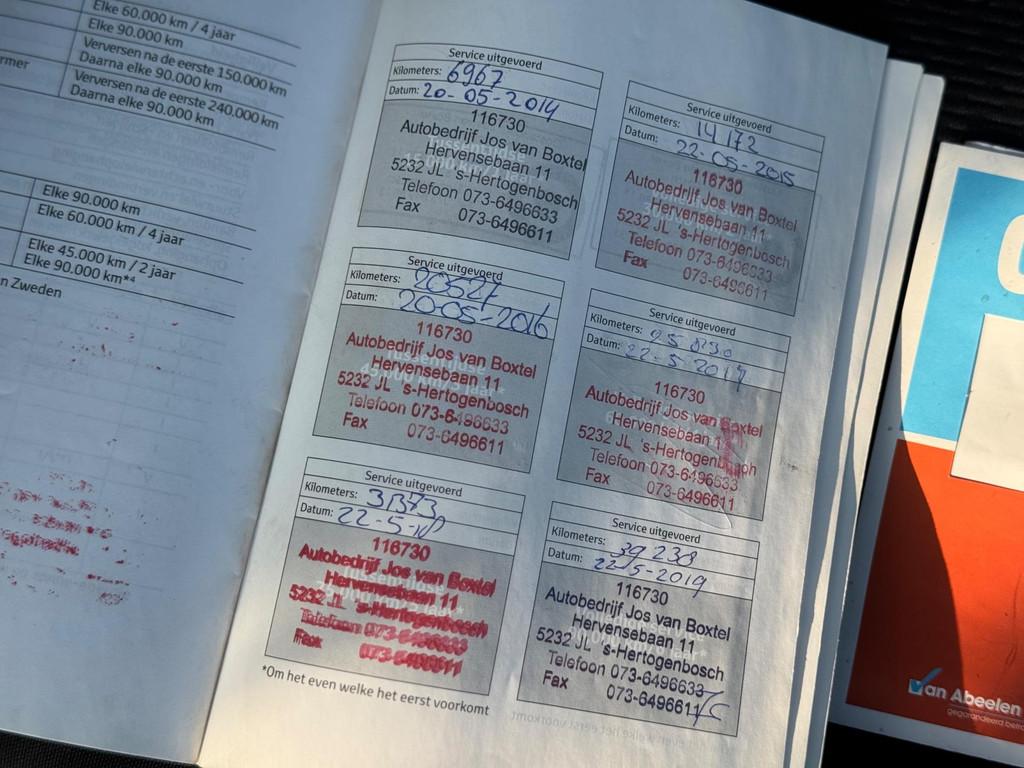 Elke 60.000 km / 4 jaar
Elke 90.000 km
Verversen na de eerste 150.000 km
Daarna elke 90.000 km
rmer
Verversen na de eerste 240.000 km
Daarna elke 90.000 km
Elke 90.000 km
Elke 60.000 km / 4 jaar
Elke 45.000 km / 2 jaar
Elke 90.000 km*⁴
n Zweden
Service uitgevoerd
Kilometers: 6967
Datum: 20-05-2014
116730
Autobedrijf Jos van Boxtel
Hervensebaan 11
5232 JL 's-Hertogenbosch
Telefoon 073-6496633
Fax 073-6496611
Service uitgevoerd
Kilometers: 14172
Datum: 22-05-2015
116730
Autobedrijf Jos van Boxtel
Hervensebaan 11
5232 JL 's-Hertogenbosch
Telefoon 073-6496633
Fax 073-6496611
Service uitgevoerd
Kilometers:
Datum: 20-05-2016
116730
Autobedrijf Jos van Boxtel
Hervensebaan 11
5232 JL 's-Hertogenbosch
Telefoon 073-6496633
Fax 073-6496611
Service uitgevoerd
Kilometers:
Datum: 22-5-2017
116730
Autobedrijf Jos van Boxtel
Hervensebaan 11
5232 JL 's-Hertogenbosch
Telefoon 073-6496633
Fax 073-6496611
Service uitgevoerd
Kilometers: 31373
Datum: 22-5-18
116730
Autobedrijf Jos van Boxtel
Hervensebaan 11
5232 JL 's-Hertogenbosch
Telefoon 073-6496633
Fax 073-6496611
Service uitgevoerd
Kilometers: 39238
Datum: 22/5-2019
116730
Autobedrijf Jos van Boxtel
Hervensebaan 11
5232 JL 's-Hertogenbosch
Telefoon 073-6496633
Fax 073-6496611
*Om het even welke het eerst voorkomt
Van Abeelen
gegarandeerd